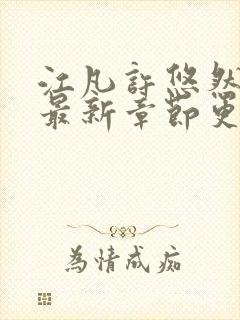 江凡許悠然
最新章節更
為情成痴